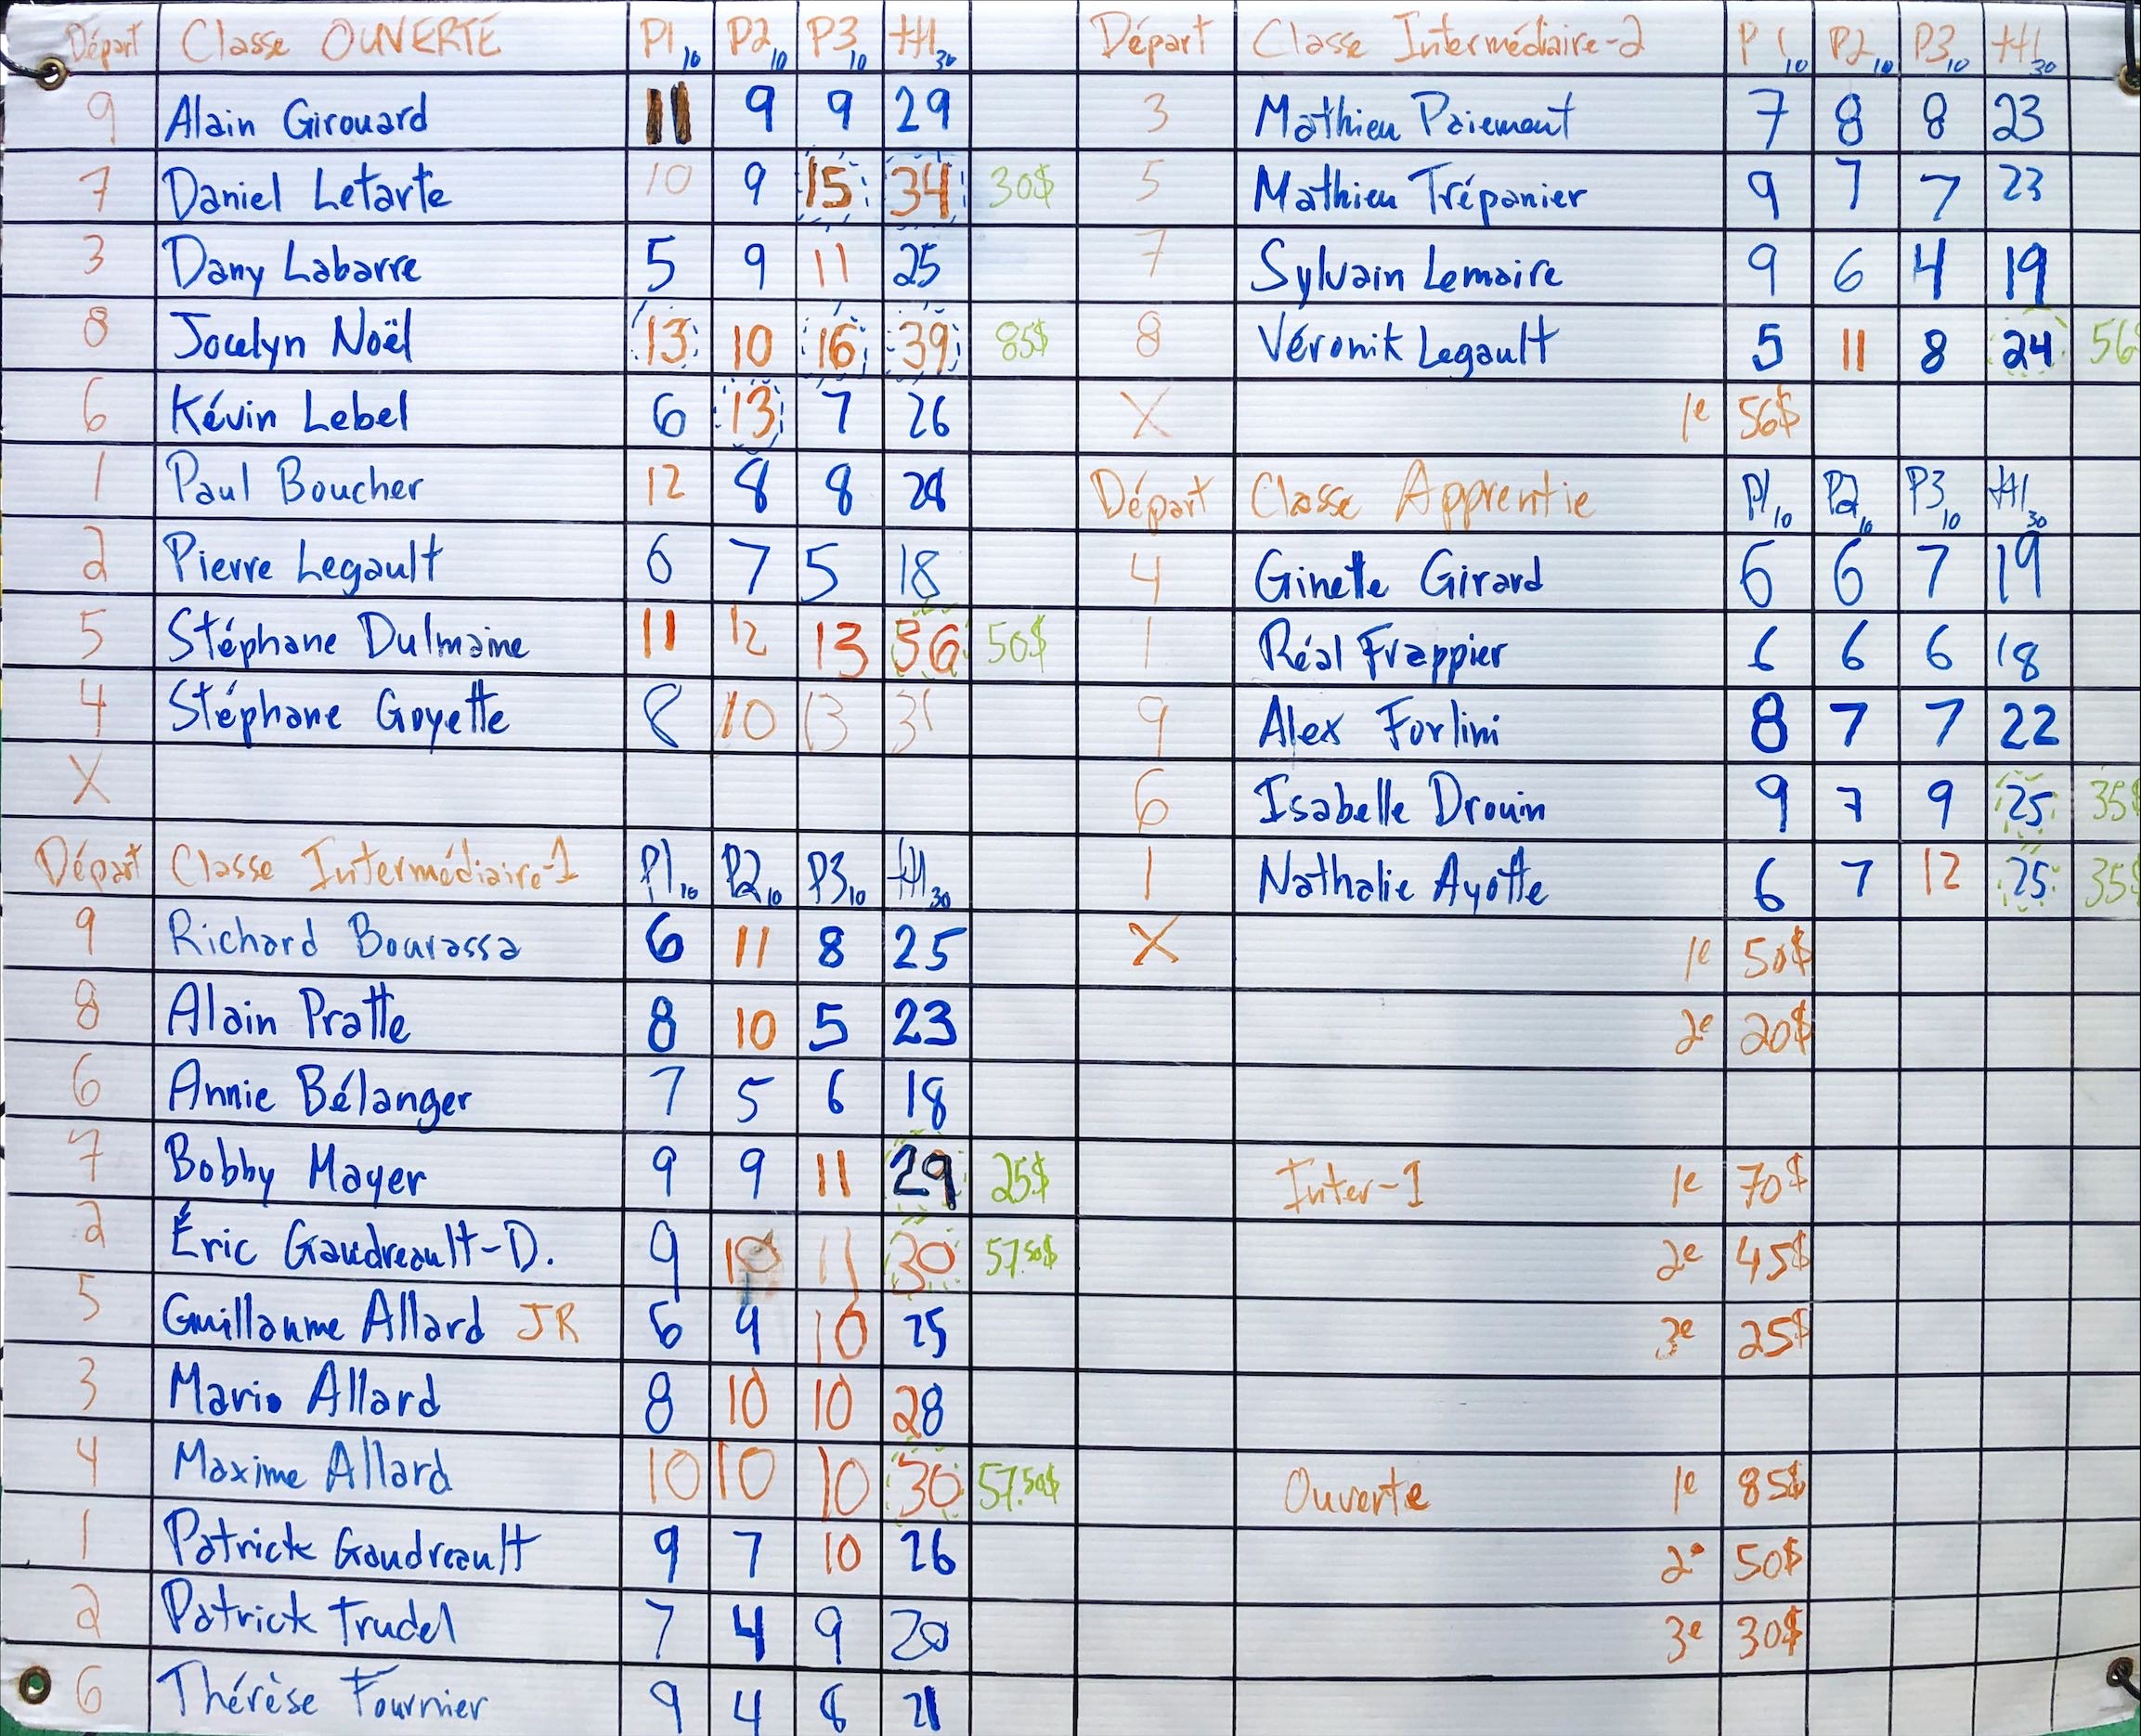 Départ Classe OUVERTE P1 10 P2 10 P3 10 ttl 30
9 Alain Girouard 11 9 9 29
7 Daniel Letarte 10 9 15 34 30$
3 Dany Labarre 5 9 11 25
8 Jocelyn Noël 13 10 16 39 85$
6 Kévin Lebel 6 13 7 26
1 Paul Boucher 12 8 8 28
2 Pierre Legault 6 7 5 18
5 Stéphane Dulmaine 11 12 13 36 50$
4 Stéphane Goyette 8 10 13 31
X
Départ Classe Intermédiaire-1 P1 10 P2 10 P3 10 ttl 30
9 Richard Bourassa 6 11 8 25
8 Alain Pratte 8 10 5 23
6 Annie Bélanger 7 5 6 18
7 Bobby Mayer 9 9 11 29 25$
2 Éric Gaudreault-D. 9 10 11 30 57.50$
5 Guillaume Allard JR 6 9 10 25
3 Mario Allard 8 10 10 28
4 Maxime Allard 10 10 10 30 57.50$
1 Patrick Gaudreault 9 7 10 26
2 Patrick Trudel 7 4 9 20
6 Thérèse Fournier 9 4 8 21
Départ Classe Intermédiaire-2 P1 10 P2 10 P3 10 ttl 30
3 Mathieu Paiement 7 8 8 23
5 Mathieu Trépanier 9 7 7 23
7 Sylvain Lemaire 9 6 4 19
8 Véronik Legault 5 11 8 24 56
X 1e 56$
Départ Classe Apprentie P1 10 P2 10 P3 10 ttl 30
4 Ginette Girard 6 6 7 19
1 Réal Frappier 6 6 6 18
9 Alex Forlini 8 7 7 22
6 Isabelle Drouin 9 7 9 25 35$
1 Nathalie Ayotte 6 7 12 25 35$
X 1e 50$
2e 20$
Inter-1 1e 70$
2e 45$
3e 25$
Ouverte 1e 85$
2e 50$
3e 30$